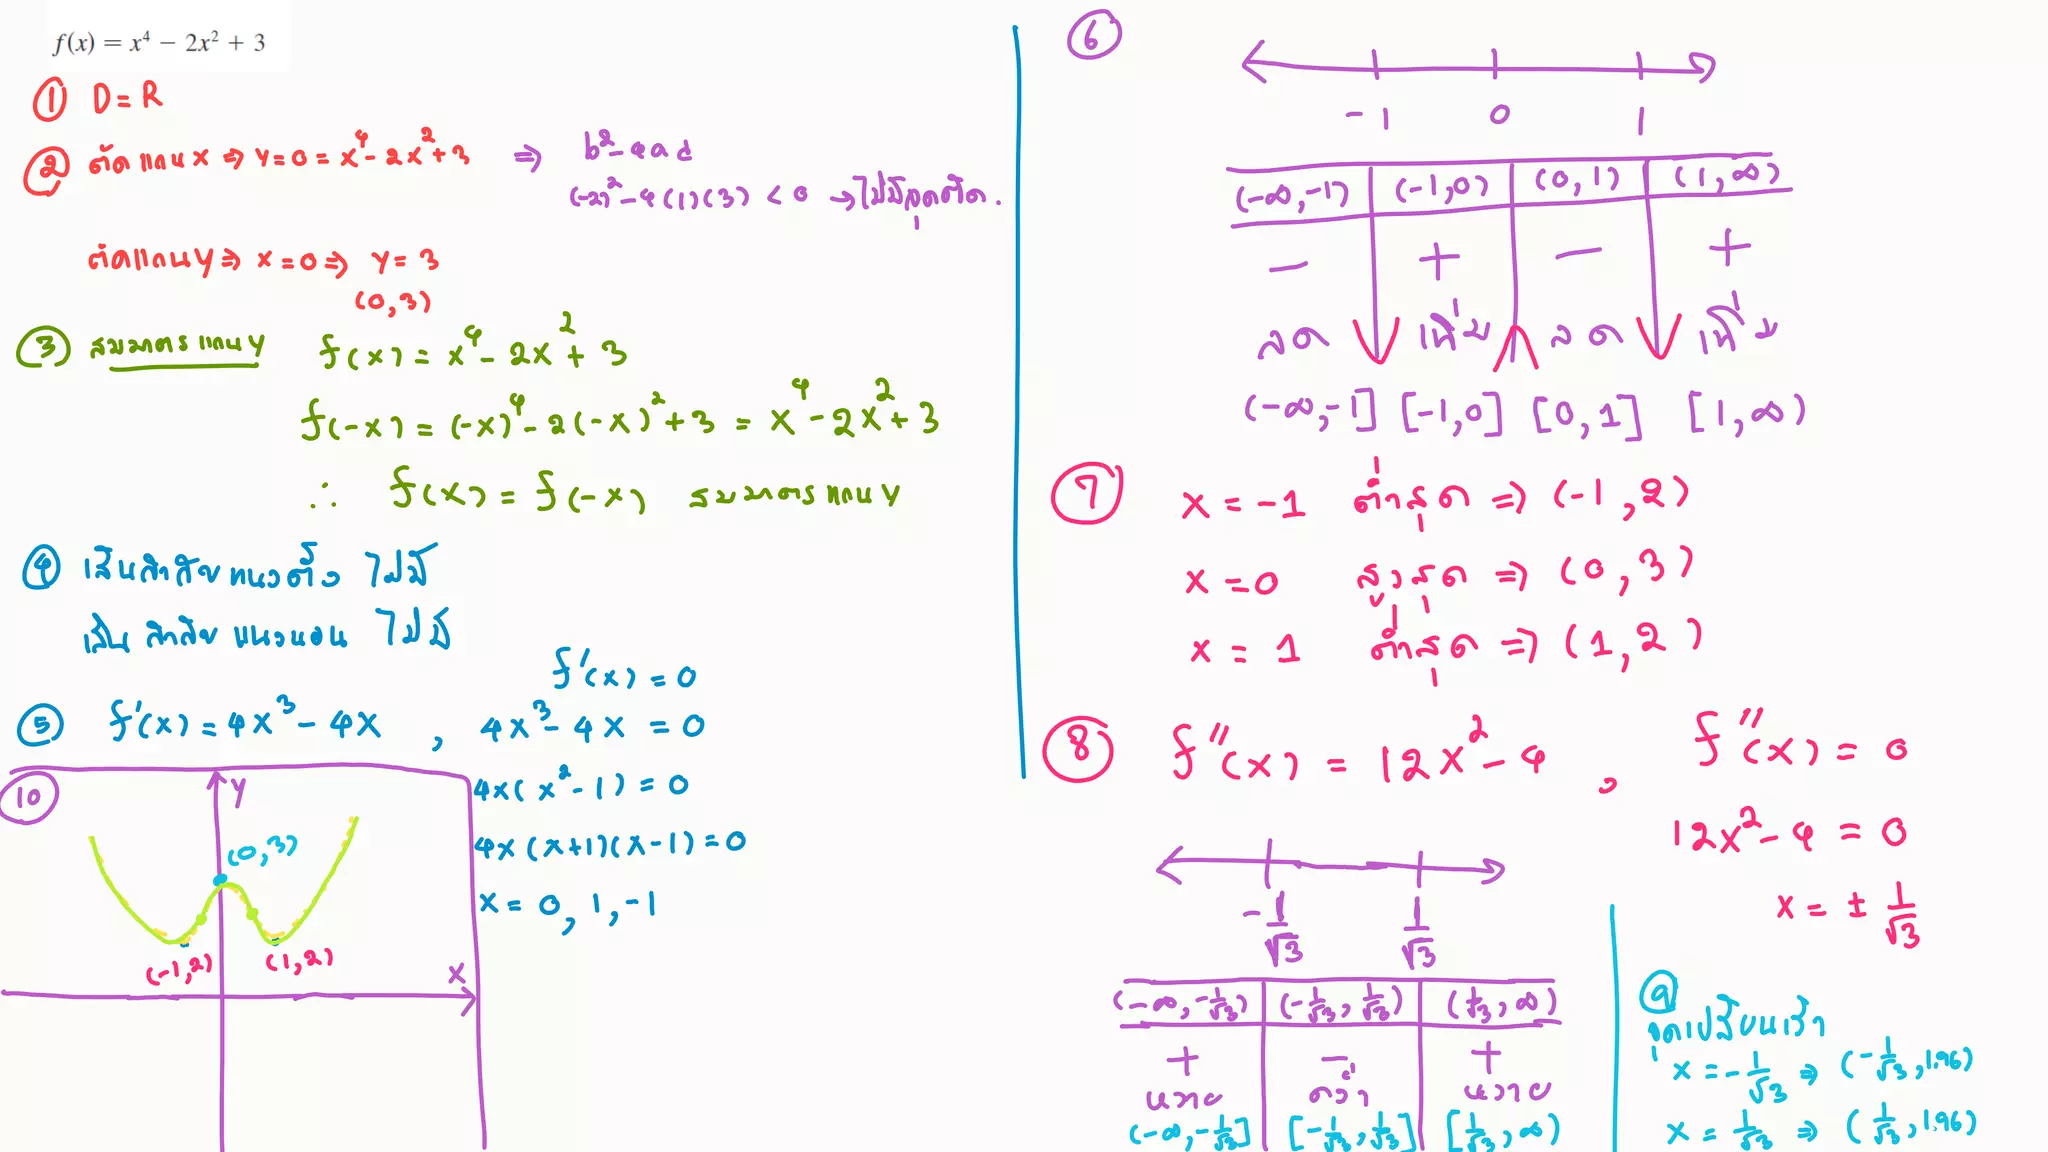 f(x) = x⁴ − 2x² + 3
① D = R
② ตัดแกน X ⇒ Y = 0 = x⁴ - 2x² + 3 ⇒ b² - 4ac
(-2)² - 4(1)(3) < 0 → ไม่มีจุดตัด.
ตัดแกน Y ⇒ x = 0 ⇒ Y = 3
(0,3)
③ สมมาตรแกน Y f(x) = x⁴ - 2x² + 3
f(-x) = (-x)⁴ - 2(-x)² + 3 = x⁴ - 2x² + 3
∴ f(x) = f(-x) สมมาตรแกน Y
④ เส้นกำกับแนวตั้ง ไม่มี
เส้นกำกับแนวนอน ไม่มี
f'(x) = 0
⑤ f'(x) = 4x³ - 4x , 4x³ - 4x = 0
4x(x² - 1) = 0
4x(x+1)(x-1) = 0
x = 0, 1, -1
⑩ Y
(0,3)
(-1,2) (1,2)
X
⑥
-1 0 1
(-∞,-1) (-1,0) (0,1) (1,∞)
- + - +
ลด เพิ่ม ลด เพิ่ม
(-∞,-1] [-1,0] [0,1] [1,∞)
⑦ x = -1 ต่ำสุด ⇒ (-1,2)
x = 0 สูงสุด ⇒ (0,3)
x = 1 ต่ำสุด ⇒ (1,2)
⑧ f''(x) = 12x² - 4 , f''(x) = 0
12x² - 4 = 0
x = ± 1/√3
-1/√3 1/√3
(-∞,-1/√3) (-1/√3,1/√3) (1/√3,∞)
+ - +
หงาย คว่ำ หงาย
(-∞,-1/√3] [-1/√3,1/√3] [1/√3,∞)
⑨
จุดเปลี่ยนเว้า
x = -1/√3 ⇒ (-1/√3, 1.96)
x = 1/√3 ⇒ (1/√3, 1.96)